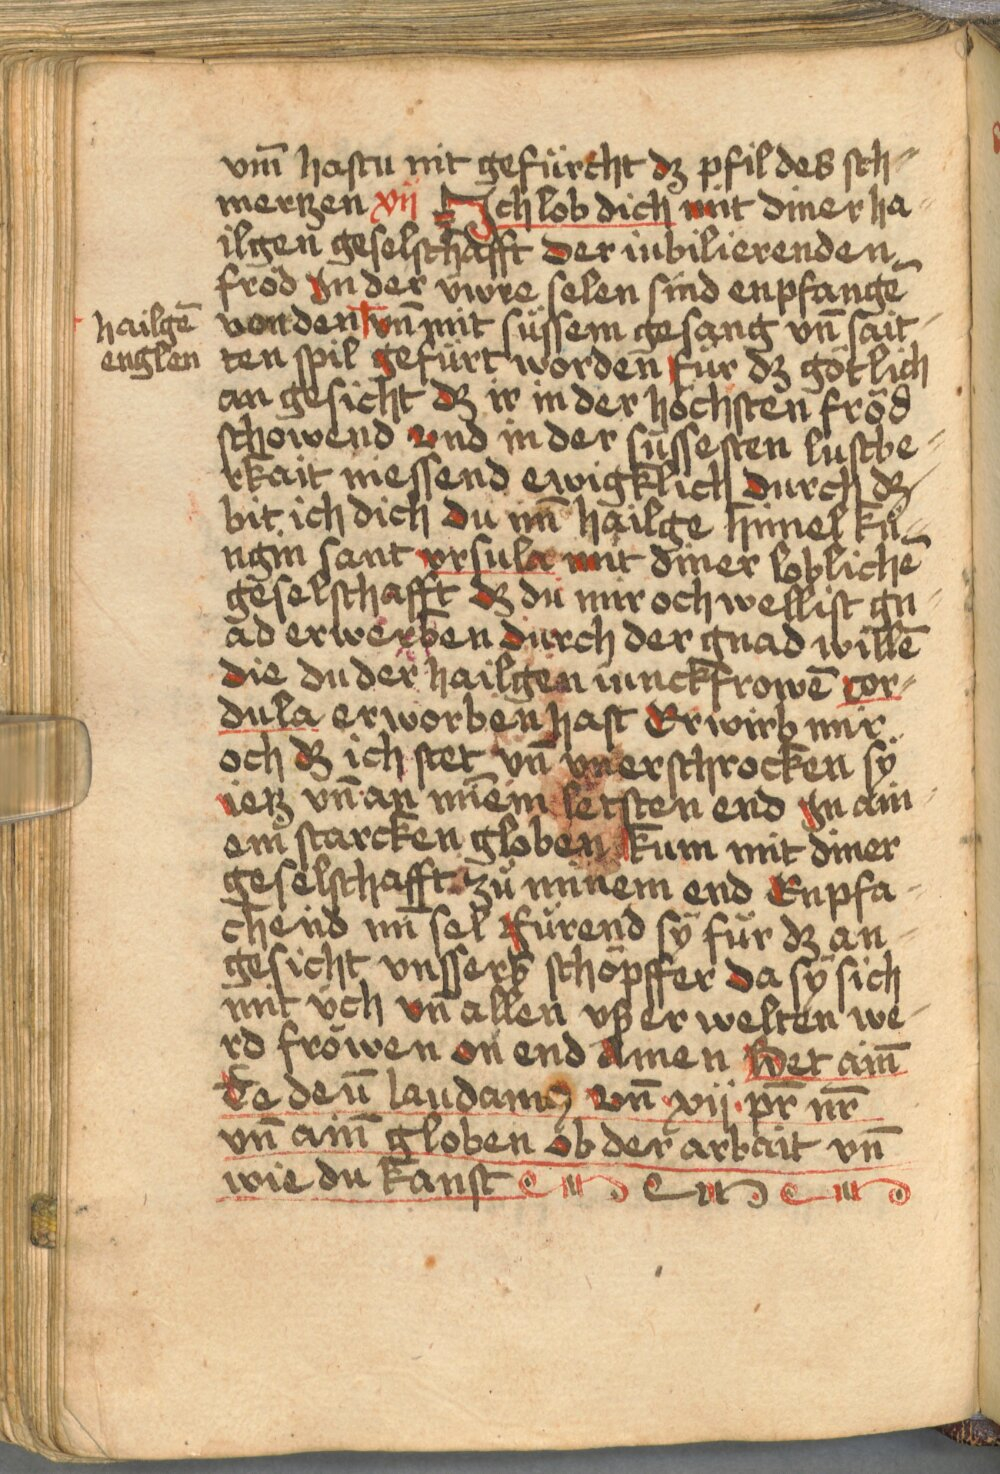 vm̄ hastu nit gefürcht dʒ pfil des sch-
merʒen xij Ich lob dich mit diner ha
ilgen geselschafft der iubilierenden
fröd In der v̈wre selen sind enpfangē
hailgē
englen
von den vn̄ mit süssem gesang vn̄ sait-
ten spil gefürt worden̄ für dʒ götlich
an gesicht dʒ ir in der höchsten fröd
schowend vnd in der süssesten lustbe-
rkait niessend ewigklich durch dʒ
bit ich dich du min̄ hailge himel kü-
ngin sant vrsula mit diner loblichē
geselschafft dʒ du mir och wellist gn-
ad erwerben durch der gnad willē
die du der hailgen iunckfrowē cor-
dula erworben hast Erwirb mir
och dʒ ich stet vn̄ vnerschrocken sÿ
ieʒ vn̄ an minem letsten end In ain-
em̄ starcken globen kum mit diner
geselschafft zů minem end Enpfa-
chend min̄ sel fürend sÿ für dʒ an-
gesicht vnssers schöpffer da sÿ sich
mit v̈ch vn̄ allen vsserwelten we-
rd fröwen on end Amen Bet ain̄
Te deū laudamꝰ vn̄ xij pr̄ nr̄
vn̄ ain̄ globen ob der arbait vn̄
wie du kanst